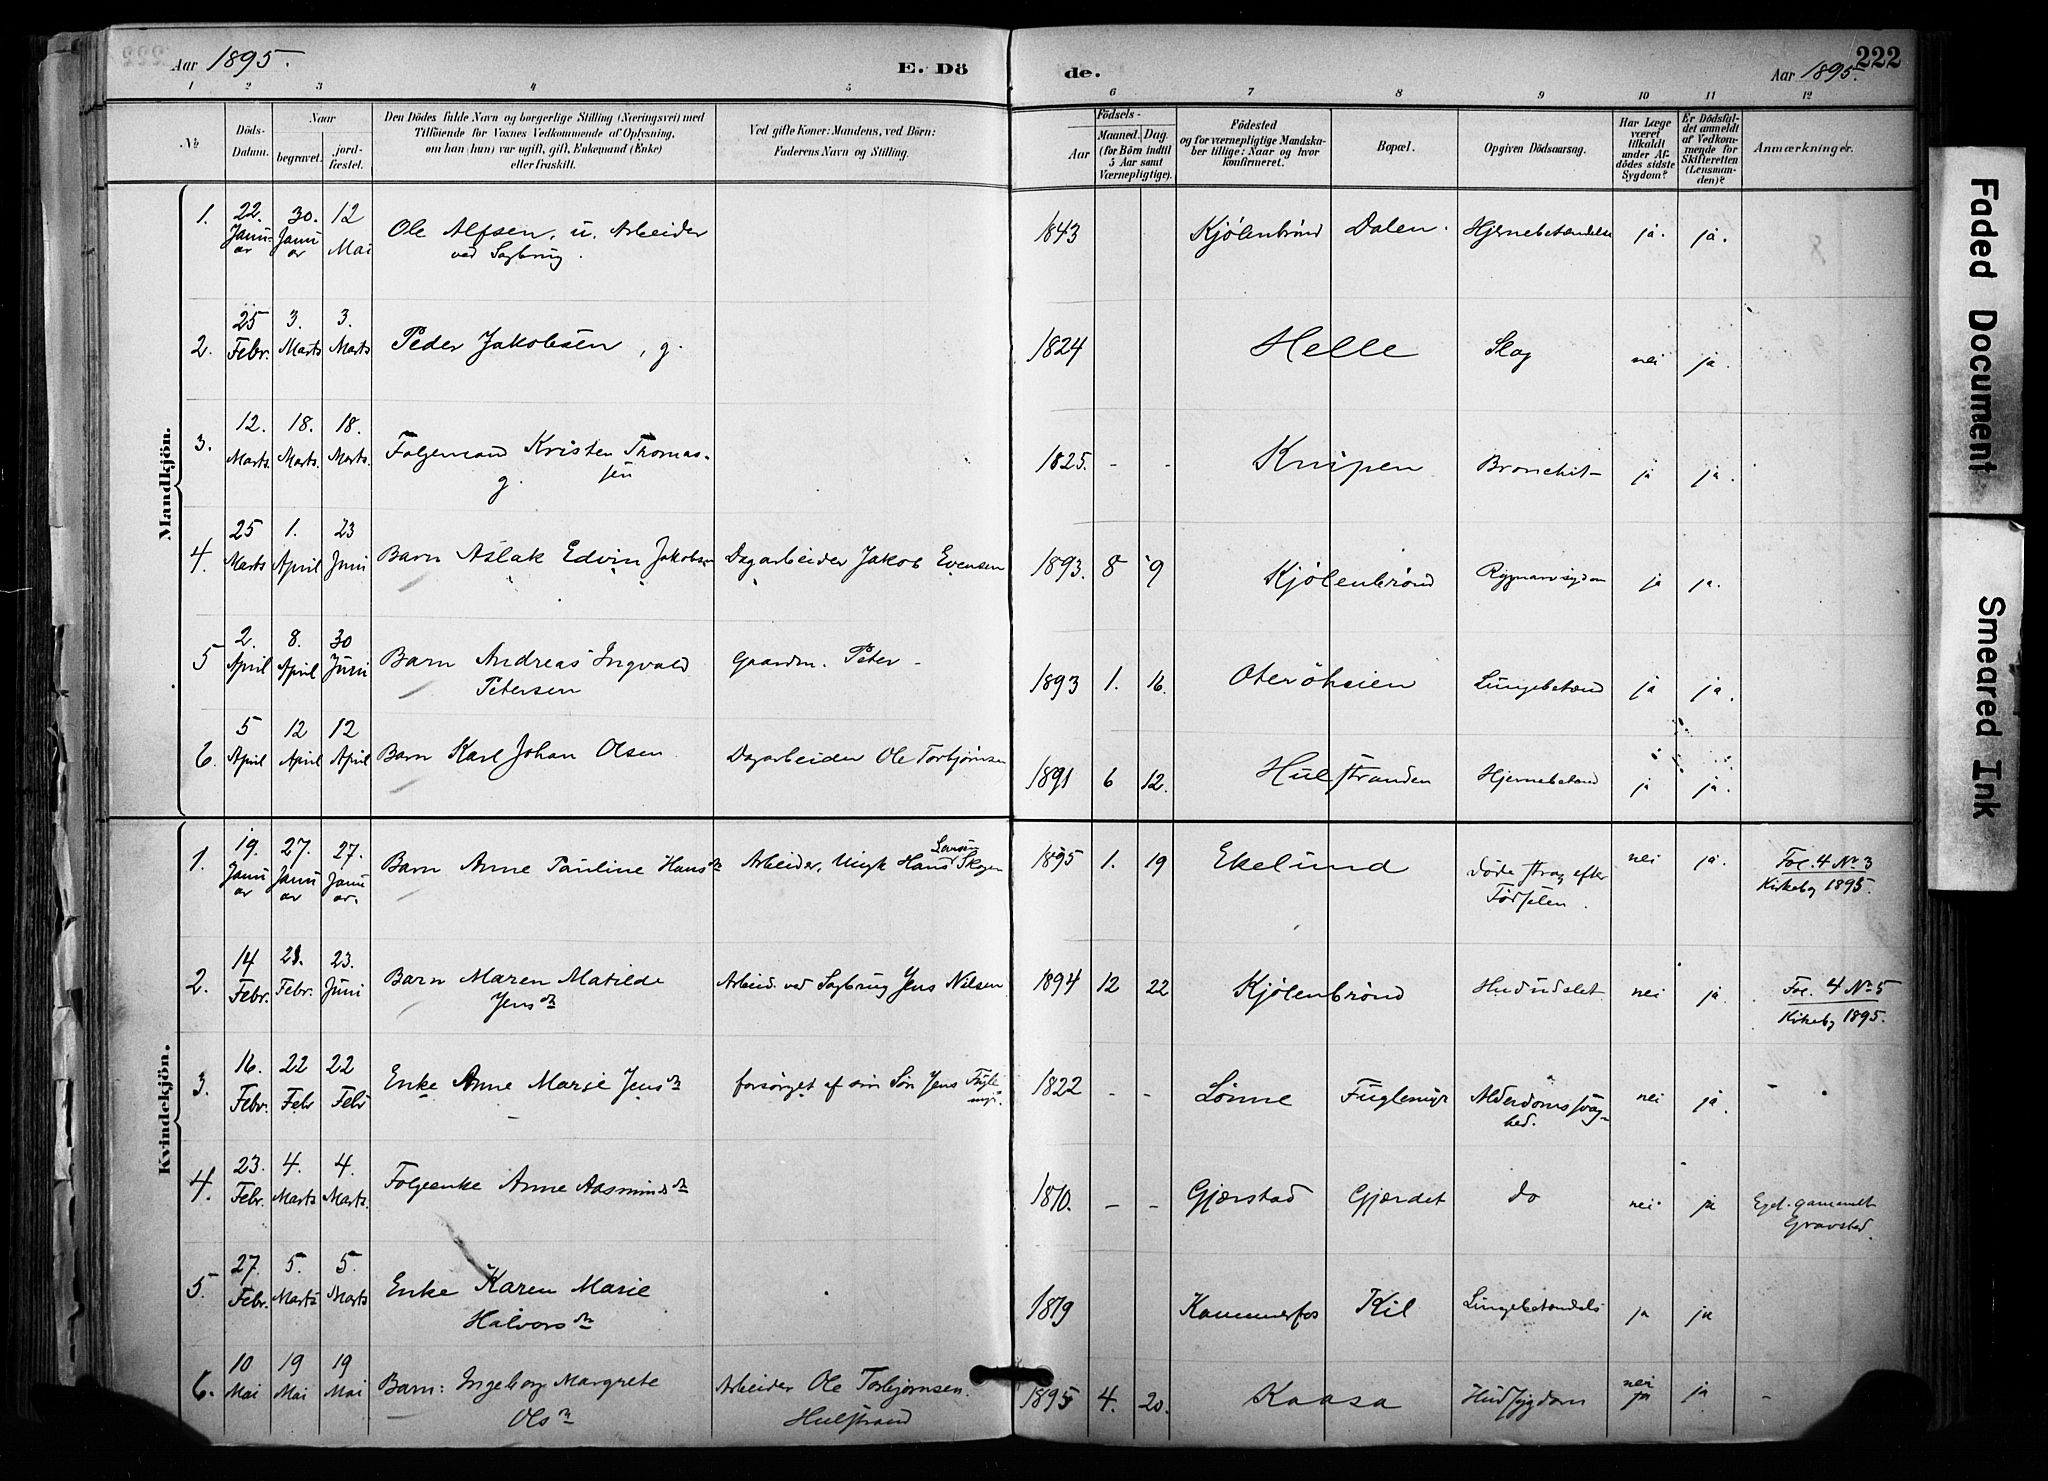 Aar 1895.
E. Dö
de.
Aar 1895.
222
1 2 3 4 5 6 7 8 9 10 11 12
No
Döds-Datum.
Naar
begravet.
jord-fæstet.
Den Dödes fulde Navn og borgerlige Stilling (Næringsvei) med
Tilföiende for Voxnes Vedkommende af Oplysning,
om han (hun) var ugift, gift, Enkemand (Enke)
eller fraskilt.
Ved gifte Koner: Mandens, ved Börn:
Faderens Navn og Stilling.
Födsels-
Aar
Maaned. Dag.
(for Börn indtil
5 Aar samt
Værnepligtige).
Födested
og for værnepligtige Mandska-
ber tillige: Naar og hvor
konfirmeret.
Bopæl.
Opgiven Dödsaarsag.
Har Læge
været
tilkaldt
under Af-
dödes sidste
Sygdom?
Er Dödsfal-
det anmeldt
af Vedkom-
mende for
Skifteretten
(Lensman-
den)?
Anmærkninger.
Mandkjön.
1. 22. Januar 30. Januar 12 Mai Ole Alfsen, u. Arbeider ved Sagbrug. 1843 Kjølenbrønd Dalen. Hjernebetændelse ja. ja.
2. 25 Febr. 3. Marts 3. Marts Peder Jakobsen, g. 1824 Helle Slag nei ja.
3. 12. Marts. 18. Marts. 18. Marts. Folgemand Kristen Thomassen g. 1825. - - Knipen Bronchit- ja ja.
4. 25 Marts 1. April 23 Juni Barn Aslak Edvin Jakobsen Dagarbeider Jakob Evensen 1893. 8 9 Kjølenbrønd Rygmarvsygdom ja ja.
5 2. April 8. April 30 Juni Barn Andreas Ingvald Petersen Gaardm. Peter - 1893 1. 16. Oterøheien Lungebetænd ja ja.
6. 5 April 12 April 12 April Barn Karl Johan Olsen Dagarbeider Ole Torbjørnsen 1891 6 12. Hulstranden Hjernebetænd ja ja.
Kvindekjön.
1. 19. Januar 27. Januar 27. Januar. Barn Anne Pauline Hansdr Arbeider, Ungk Hans Larsen Skogen 1895 1. 19 Ekelund Døde strax efter Fødselen. nei ja. Fol. 4 No 3 Kirkebg 1895.
2. 14 Febr. 21. Febr. 23. Juni Barn Maren Matilde Jensdr Arbeid. ved Sagbrug Jens Nilsen 1894 12 22 Kjølenbrønd Hududslet nei ja Fol. 4 No 5 Kirkebg 1895.
3. 16. Febr. 22 Febr 22 Febr Enke Anne Marie Jensdr forsørget af sin Søn Jens Fuglemyr. 1822 - - Lønne Fuglemyr Alderdomssvaghed. nei ja -
4. 23. Febr. 4. Marts 4. Marts. Folgeenke Anne Aasmundsdr 1810. - - Gjerstad Gjerdet do nei ja Egel. gammelt Gravsted.
5. 27. Febr. 5. Marts 5. Marts Enke Karen Marie Halvorsdr 1819 Kammerfos Kil Lungebetændels ja ja
6. 10 Mai 19 Mai 19 Mai Barn: Ingeborg Margrete Olsdr Arbeider Ole Torbjørnsen. Hulstrand 1895 4. 20. Kaasa Hudsygdom nei ja ja -
Faded Document
Smeared Ink